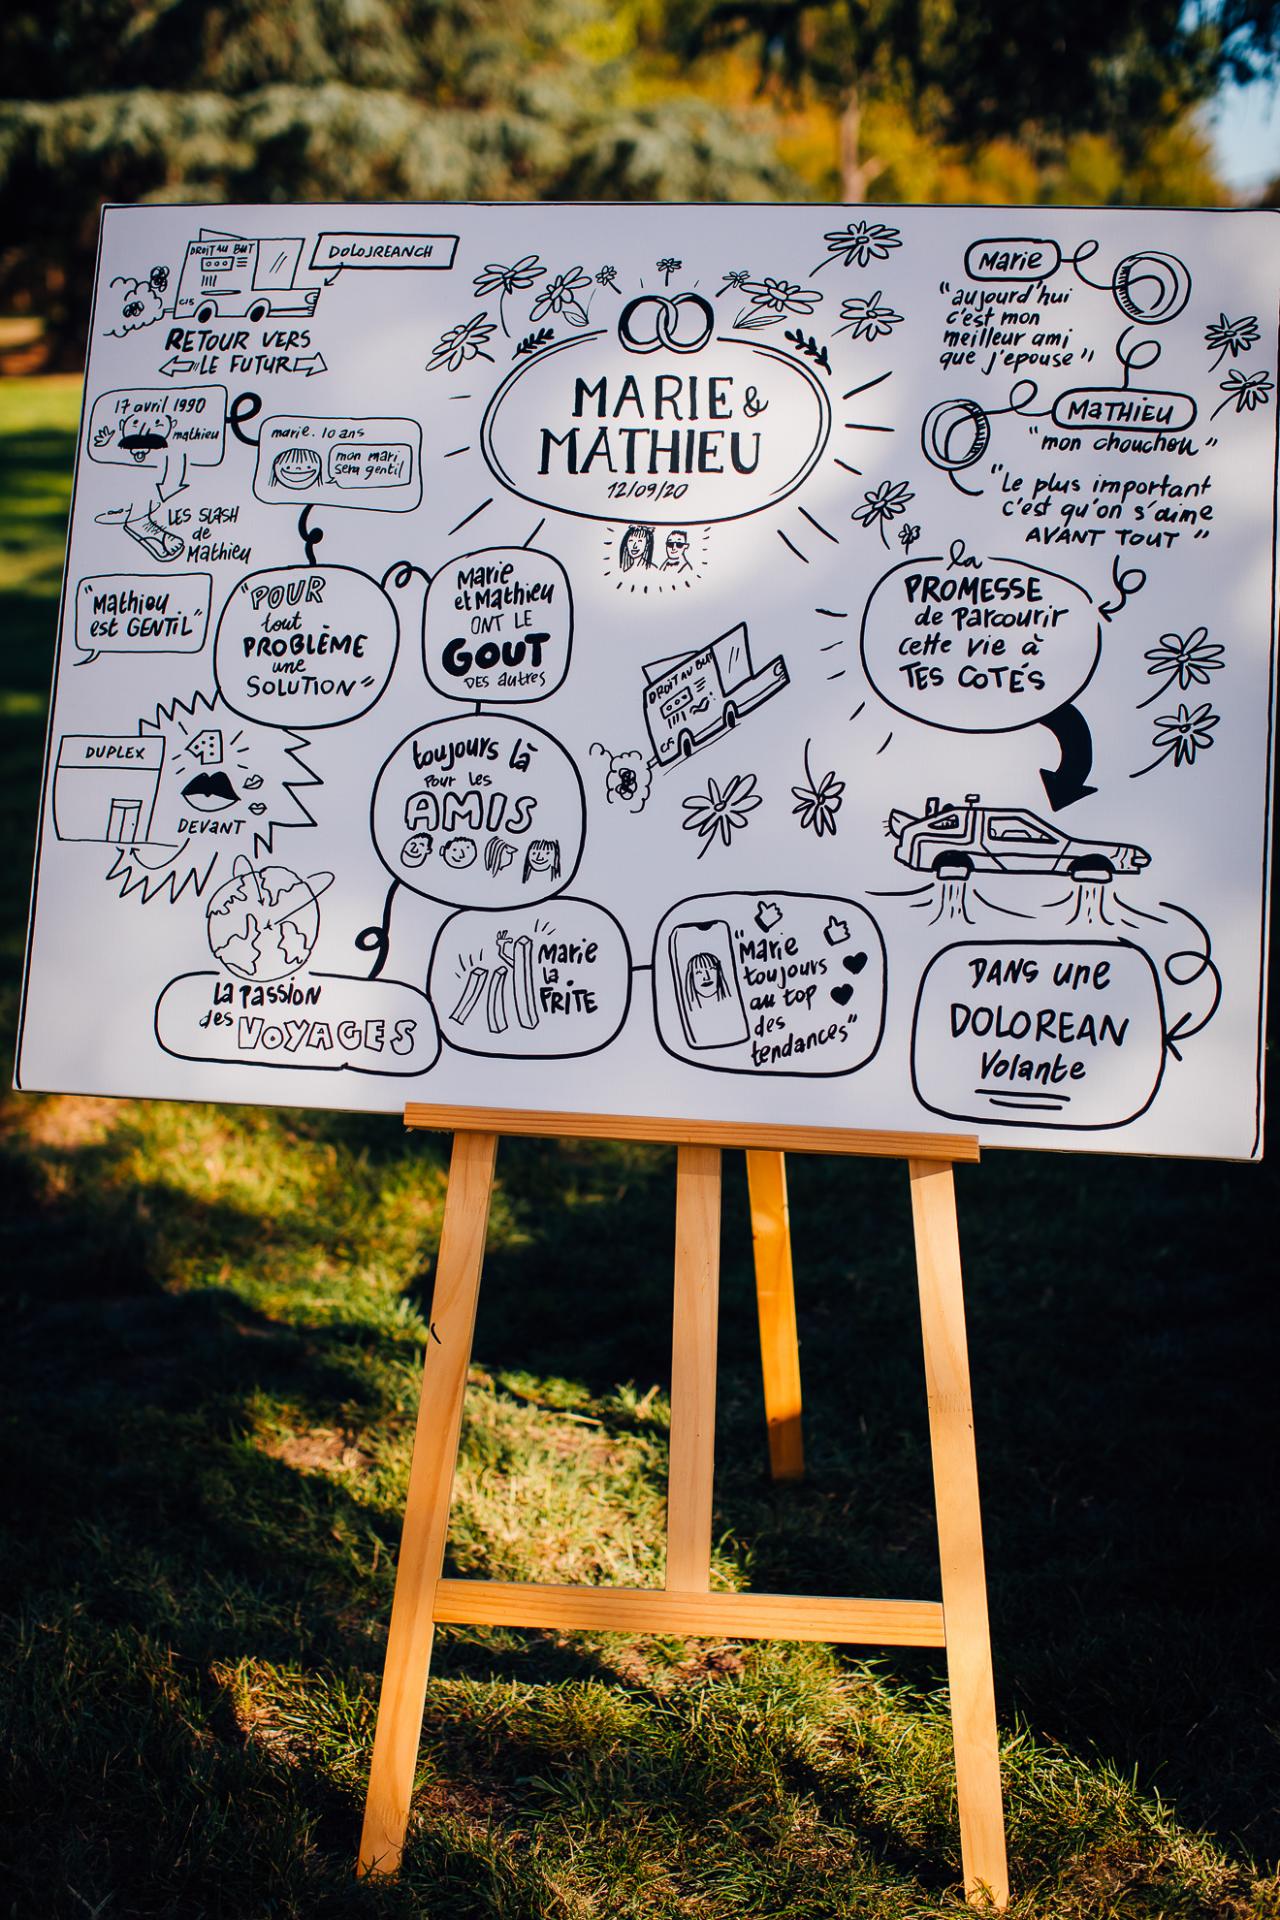 DROIT AU BUT
C15
DOLOJREANCH
RETOUR VERS
LE FUTUR
17 avril 1990
mathieu
marie. 10 ans
mon mari
sera gentil
LES SLASH
de
Mathieu
"Mathieu
est GENTIL"
"POUR
tout
PROBLÈME
une
SOLUTION"
Marie
et Mathieu
ONT LE
GOUT
DES autres
DUPLEX
DEVANT
toujours là
Pour les
AMIS
la Passion
des VOYAGES
Marie
la
FRITE
"Marie
toujours
au top
des
tendances"
MARIE &
MATHIEU
12/09/20
DROIT AU BUT
C15
Marie
"aujourd'hui
c'est mon
meilleur ami
que j'epouse"
MATHIEU
"mon chouchou"
"Le plus important
c'est qu'on s'aime
AVANT TOUT"
la
PROMESSE
de Parcourir
cette vie à
TES COTÉS
DANS une
DOLOREAN
Volante